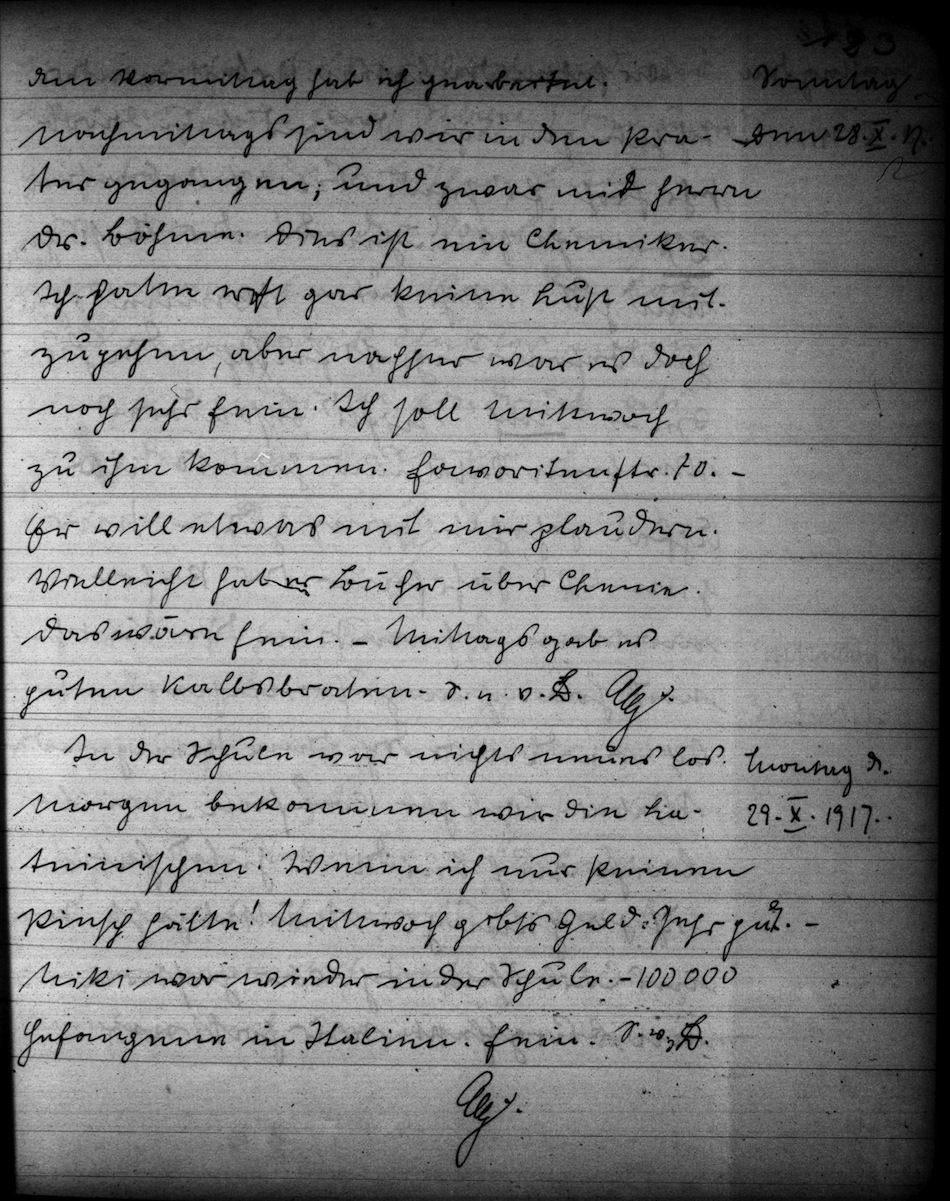 193
Am Vormittag hab ich gearbeitet. Sonntag
Nachmittags sind wir in den Pra- den 28.X.17.
ter gegangen; und zwar mit Herrn
Dr. Böhme. Dies ist ein Chemiker.
Ich hatte erst gar keine Lust mit-
zugehen, aber nachher war es doch
noch sehr fein. Ich soll Mittwoch
zu ihm kommen. Favoritenstr. 70. –
Er will etwas mit mir plaudern.
Vielleicht hat er Bücher über Chemie.
Das wäre fein. – Mittags gab es
guten Kalbsbraten. – S. u. v. B.
In der Schule war nichts neues los. Montag d.
Morgen bekommen wir die La- 29.X.1917.
teinischen. Wenn ich nur keinen
Pinsch hätte! Mittwoch gibts Geld. Sehr gut. –
Miki war wieder in der Schule. – 100000
Gefangene in Italien. Fein. S. u. B.